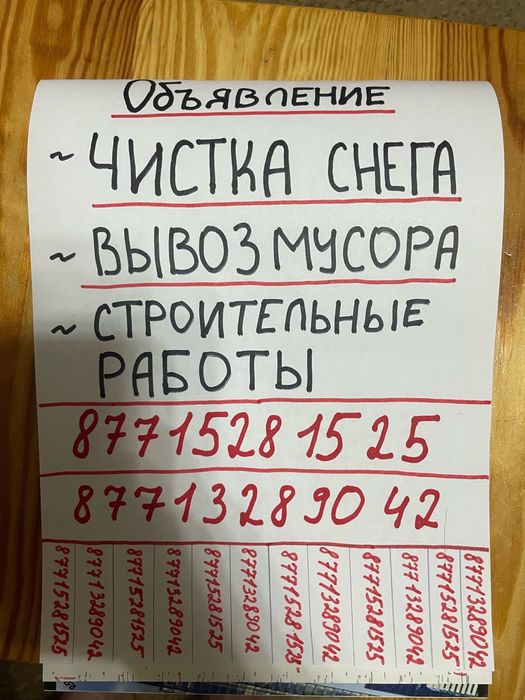 Объявление
~ ЧИСТКА СНЕГА
~ ВЫВОЗ МУСОРА
~ СТРОИТЕЛЬНЫЕ
РАБОТЫ
8771528 15 25
8771328 90 42
87715281525
87713289042
87715281525
87713289042
87715281525
87713289042
87715281525
87713289042
87715281525
87713289042
87715281525
87713289042